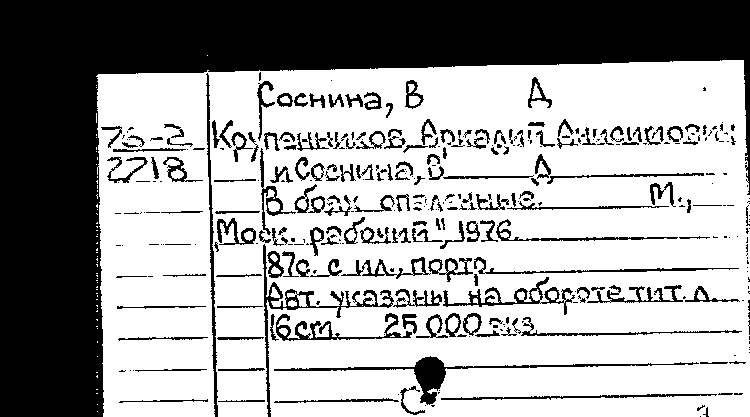 Соснина, В Д
76-2 Крупенников, Аркадий Анисимович
2718 и Соснина, В Д
В боях опаленные. М.,
"Моск. рабочий", 1976.
87с. с ил., портр.
Авт. указаны на обороте тит. л.
16 cm. 25 000 экз